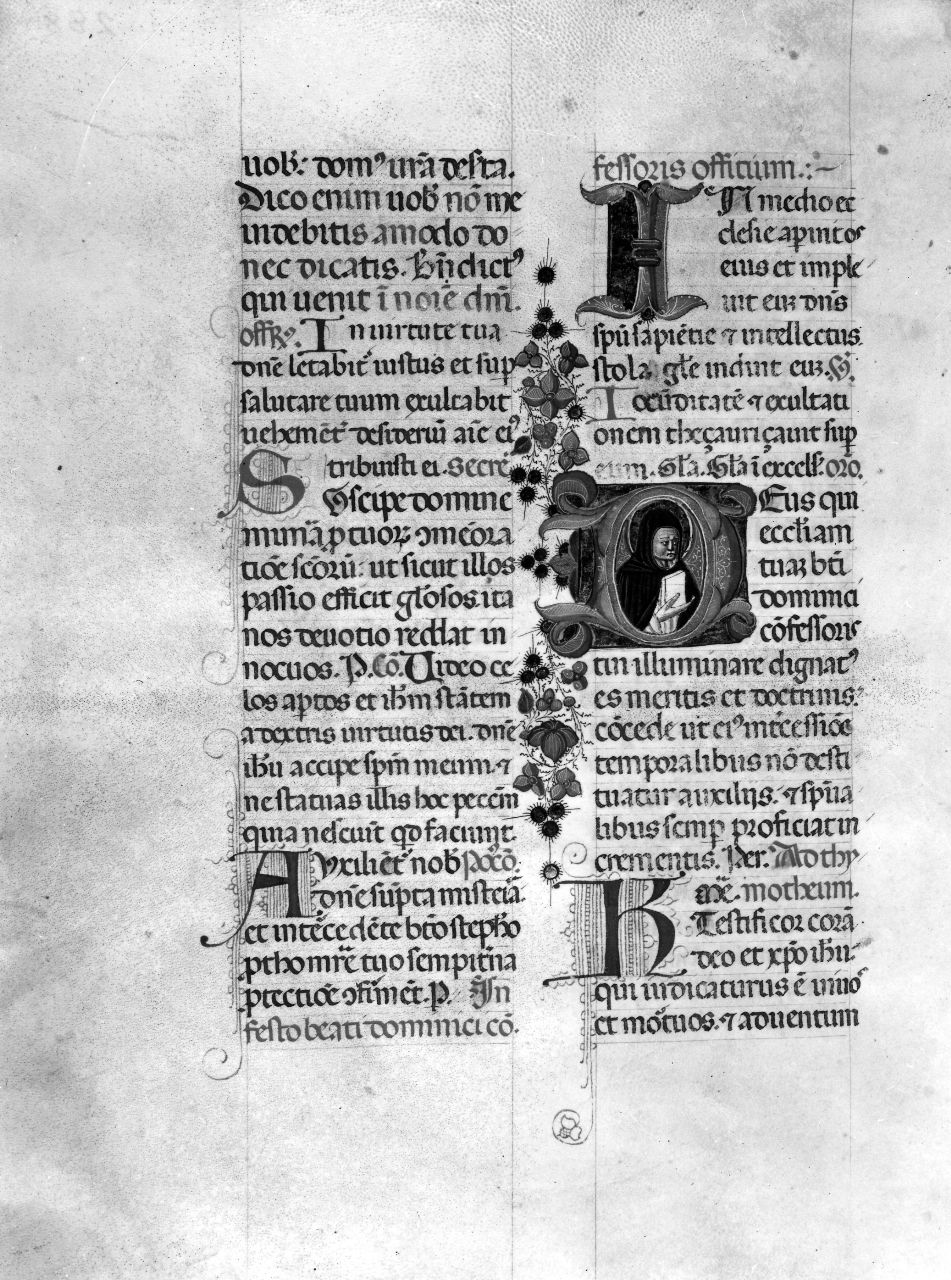 uob̄: dom⁹ ur̄a deſta.
Dico enim uob̄ nō me
uidebitis amodo do
nec dicatis. Bn̄dict⁹
qui uenit ī noīe dn̄i.
offr̄⁊. In uirtute tua
dn̄e letabit᷑ iustus et sup̄
salutare tuum exultabit
uehemēt᷑ desideriū aīe ei⁹
tribuisti ei. Secrē
Suscipe domine
munā p̱ tuoꝝ ↄmēora
tiōe scōrū: ut sicut illos
passio efficit gl̄osos ita
nos deuotio reddat in
nocuos. P. Cō. Uideo ce
los aptos et ih̄m stātem
a dextris uirtutis dei. dn̄e
ih̄u accipe sp̄m meum. ⁊
ne statuas illis hoc pecc̄m
quia nesciūt qd̄ faciunt.
Auxiliēt᷑ nob̄ Po᷑cō.
dn̄e sūpta misteīa
et int᷑cedēte bt̄o steph̄o
ꝓthom̄re tuo sempit᷑na
ꝓtectiōe ↄfirmēt. P. In
festo beati dominici cō
fessoris officium.:~
IN medio ec
clesie apuit os
eius et imple
uit eūꝫ dn̄s
sp̄u sapiētie ⁊ intellectus
stola gl̄e induit eūꝫ. V̄.
Iocūditatē ⁊ exultati
onem theçauriçauit sup̄
eum. Gl̄a. Gl̄a ī excelſ. orō.
DEus qui
eccl̄iam
tuaꝫ bt̄i
dominici
cōfessoris
tui illuminare dignat⁹
es meritis et doctrinis:
cōcede ut ei⁹ int᷑cessiōe
temporalibus nō desti
tuatur auxilijs. ⁊ sp̄ua
libus semp̄ proficiat in
crementis. Per. Ad thy
Kme. motheum.
Testificor corā
deo et xp̄o ih̄u.
qui iudicaturus ē uiuos
et mōtuos. ⁊ aduentum